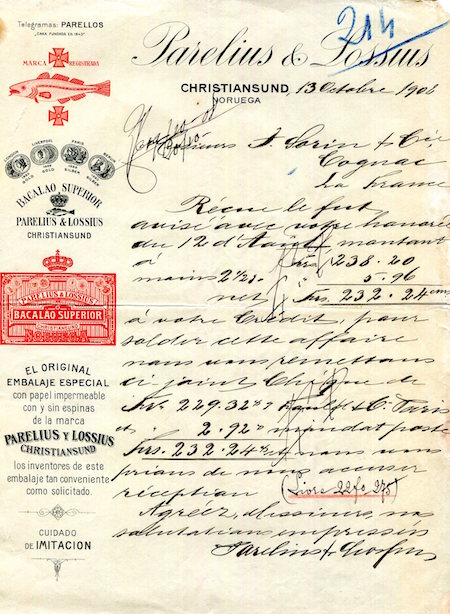 Telegramas: PARELLOS
"CASA FUNDADA EN 1843"
MARCA REGISTRADA
LONDON LIVERPOOL PARIS BERLIN
GOLD GOLD SILBER SILBER
BACALAO SUPERIOR
PARELIUS & LOSSIUS
CHRISTIANSUND
PARELIUS & LOSSIUS
BACALAO SUPERIOR
CHRISTIANSUND
NORUEGA
EL ORIGINAL
EMBALAJE ESPECIAL
con papel impermeable
con y sin espinas
de la marca
PARELIUS Y LOSSIUS
CHRISTIANSUND
los inventores de este
embalaje tan conveniente
como solicitado.
CUIDADO
de IMITACION
214
Parelius & Lossius
CHRISTIANSUND, 13 Octobre 1908
NORUEGA
Messieurs A. Sorin & Cie
Cognac
La France
Reçue le fut
avisé avec votre honorée
du 12 d'Août montant
à frs 238.20
moins 2½% 5.96
net frs. 232.24 cms
à votre Crédit, pour
solder cette affaire
nous vous remettons
ci joint Chèque de
frs. 229.32 & Co. Paris
et " 2.92 mandat poste
frs. 232.24 et nous vous
prions de nous accuser
réception (Livre 22 fo 275)
Agréez, Messieurs, nos
salutations empressées
Parelius & Lossius